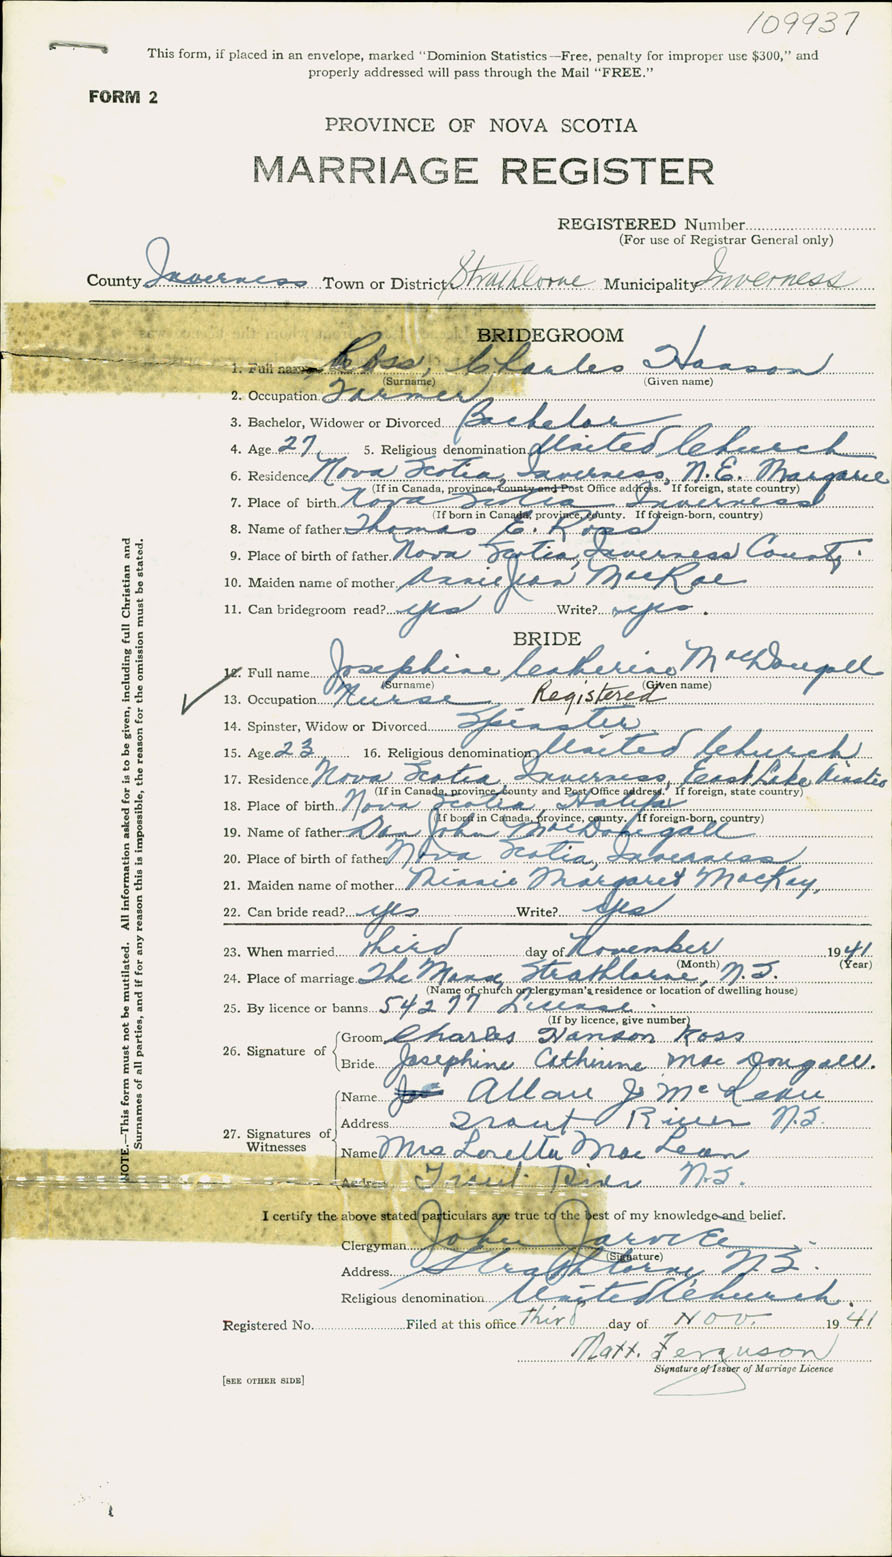 109937
This form, if placed in an envelope, marked "Dominion Statistics—Free, penalty for improper use $300," and
properly addressed will pass through the Mail "FREE."
FORM 2
PROVINCE OF NOVA SCOTIA
MARRIAGE REGISTER
REGISTERED Number
(For use of Registrar General only)
County Inverness Town or District Strathlorne Municipality Inverness
BRIDEGROOM
1. Full name Ross, Charles Hanson
(Surname) (Given name)
2. Occupation Farmer
3. Bachelor, Widower or Divorced Bachelor
4. Age 27 5. Religious denomination United Church
6. Residence Nova Scotia, Inverness, N.E. Margaree
(If in Canada, province, county and Post Office address. If foreign, state country)
7. Place of birth Nova Scotia Inverness
(If born in Canada, province, county. If foreign-born, country)
8. Name of father Thomas E. Ross
9. Place of birth of father Nova Scotia, Inverness County.
10. Maiden name of mother Annie Jean MacRae
11. Can bridegroom read? yes Write? yes.
BRIDE
12. Full name Josephine Catherine MacDougall
(Surname) (Given name)
13. Occupation Nurse Registered
14. Spinster, Widow or Divorced Spinster
15. Age 23 16. Religious denomination United Church
17. Residence Nova Scotia Inverness, East Lake Ainslie
(If in Canada, province, county and Post Office address. If foreign, state country)
18. Place of birth Nova Scotia, Halifax
(If born in Canada, province, county. If foreign-born, country)
19. Name of father Dan John MacDougall
20. Place of birth of father Nova Scotia, Inverness
21. Maiden name of mother Minnie Margaret MacKay,
22. Can bride read? yes Write? yes
23. When married third day of November 1941
(Month) (Year)
24. Place of marriage The Manse, Strathlorne, N.S.
(Name of church or clergyman's residence or location of dwelling house)
25. By licence or banns 54277 License.
(If by licence, give number)
26. Signature of Groom Charles Hanson Ross
Bride Josephine Catherine MacDougall.
27. Signatures of Witnesses
Name Allan J. McLean
Address Trout River N.S.
Name Mrs Loretta MacLean
Address Trout River N.S.
I certify the above stated particulars are true to the best of my knowledge and belief.
Clergyman John
(Signature)
Address Strathlorne N.S.
Religious denomination United Church.
Registered No. Filed at this office third day of Nov. 1941
Matt. Ferguson
Signature of Issuer of Marriage Licence
[SEE OTHER SIDE]
NOTE.—This form must not be mutilated. All information asked for is to be given, including full Christian and
Surnames of all parties, and if for any reason this is impossible, the reason for the omission must be stated.